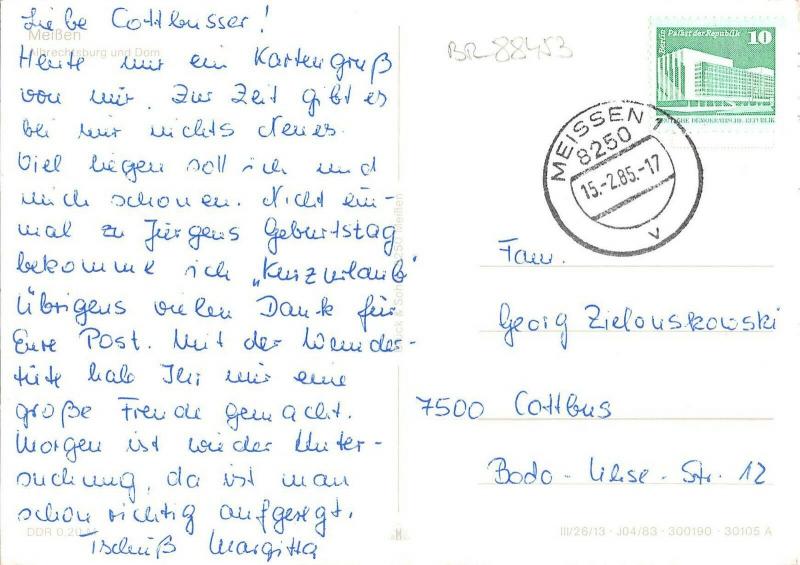 Liebe Cottbusser!
Meißen
Albrechtsburg und Dom
Heute nur ein Kartengruß
von mir. Zur Zeit gibt es
bei mir nichts Neues.
Viel liegen soll ich und
mich schonen. Nicht ein-
mal zu Jürgens Geburtstag
bekomme ich „Kurzurlaub"
Übrigens vielen Dank für
Eure Post. Mit der Wunder-
tüte habt Ihr mir eine
große Freude gemacht.
Morgen ist wieder Unter-
suchung, da ist man
schon richtig aufgeregt.
Tschüß Margitta
DDR 0,20 M
BR 88453
Berlin Palast der Republik 10
DEUTSCHE DEMOKRATISCHE REPUBLIK
MEISSEN 1
8250
15.-2.85.-17
v
Fam.
Georg Zielonskowski
7500 Cottbus
Bodo-Uhse-Str. 12
III/26/13 · J04/83 · 300190 · 30105 A